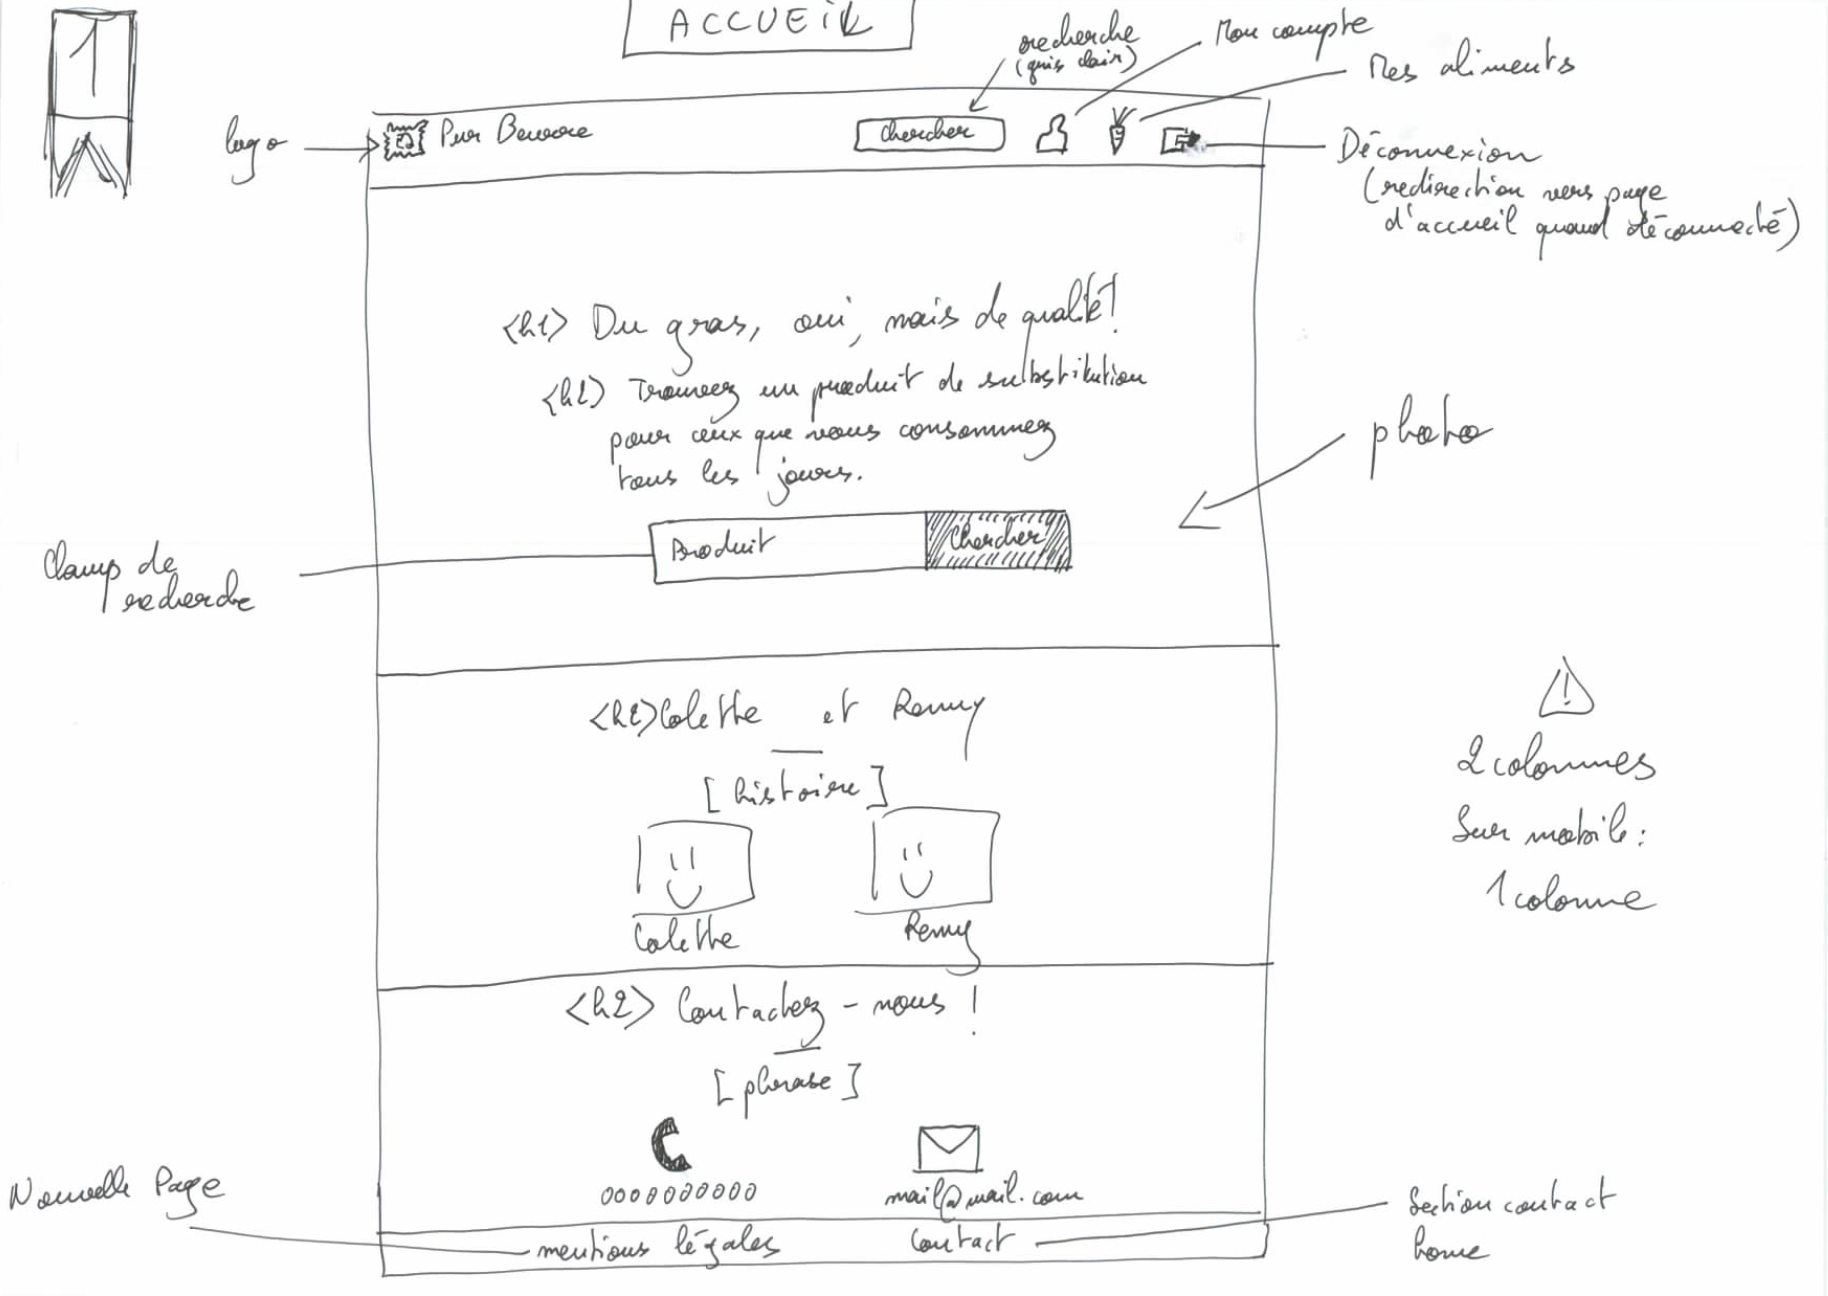 1
ACCUEIL
recherche
(gris clair)
Mon compte
Mes aliments
logo
Pur Beurre
Chercher
Déconnexion
(redirection vers page
d'accueil quand déconnecté)
<h1> Du gras, oui, mais de qualité!
<h2> Trouvez un produit de substitution
pour ceux que vous consommez
tous les jours.
photo
Produit
Chercher
Champ de
recherche
<h2> Colette et Remy
[histoire]
Colette
Remy
2 colonnes
Sur mobile:
1 colonne
<h2> Contactez-nous !
[phrase]
0000000000
mail@mail.com
Nouvelle Page
mentions légales
Contact
Section contact
home